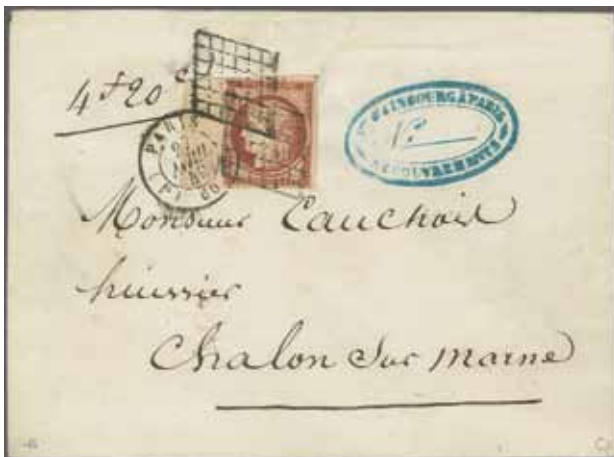 4f20c
PARIS
(F)
60
A PARIS
RECOUVREMENTS
Monsieur Cauchois
huissier
Chalon Sur Marne